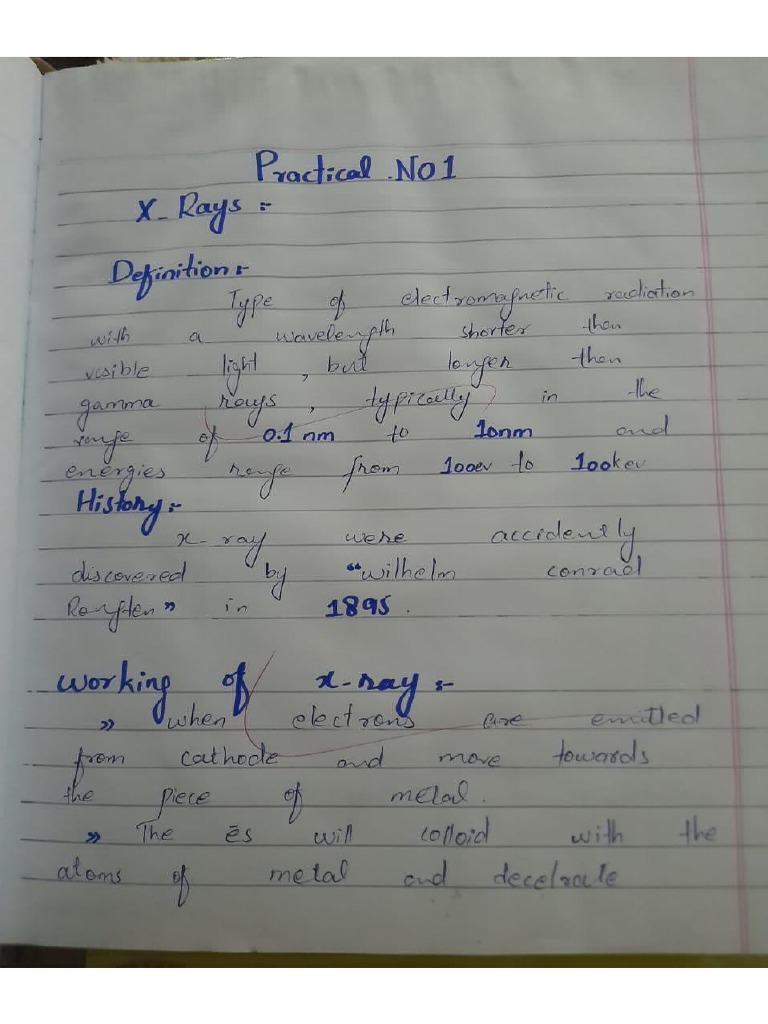 Practical .NO1
X-Rays :-
Definition:-
Type of electromagnetic radiation
with a wavelength shorter then
visible light , but longer then
gamma rays , typically in the
range of 0.1 nm to 10nm and
energies range from 100ev to 100kev
History:-
x-ray were accidently
discovered by "wilhelm conrad
Rongten" in 1895 .
Working of x-ray :-
» when electrons are emitted
from cathode and move towards
the piece of metal.
» The ēs will colloid with the
atoms of metal and decelrate